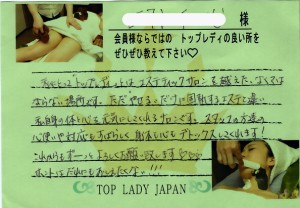 様
会員様ならではの トップレディの良い所を
ぜひぜひ教えて下さい♡
私にとって"トップレディ"とは、エステティックサロンを越えた、なくては
ならない場所です。ただ"やせる"だけに固執するエステと違い
私自身の体トータル元気にしてくれるサロンです。スタッフの方達の
心使いや対応もすばらしく身も心もデトックスしてくれます!
これからもずーっとよろしくお願い致します♡♡♡
ホントはだれにもおしえたくない!!!
TOP LADY JAPAN